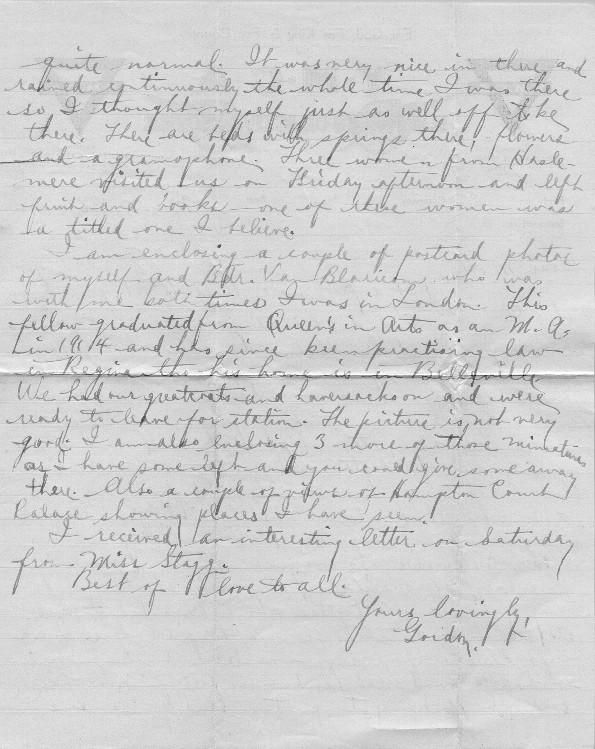 quite normal. It was very nice in there and
rained continuously the whole time I was there
so I thought myself just as well off to be
there. There are beds with springs there, flowers
and a gramophone. Three women from Hasle-
mere visited us on Friday afternoon and left
fruit and books - one of these women was
a titled one I believe.
I am enclosing a couple of postcard photos
of myself and Bdr. Van Blaricom who was
with me both times I was in London. This
fellow graduated from Queen's in Arts as an M.A.
in 1914 and has since been practising law
in Regina tho his home is in Belleville
We had our greatcoats and haversacks on and were
ready to leave for station. The picture is not very
good. I am also enclosing 3 more of those miniatures
as I have some left and you could give some away
there. Also a couple of views of Hampton Court
Palace showing places I have seen.
I received an interesting letter on Saturday
from Miss Stagg.
Best of love to all.
Yours lovingly,
Gordon.